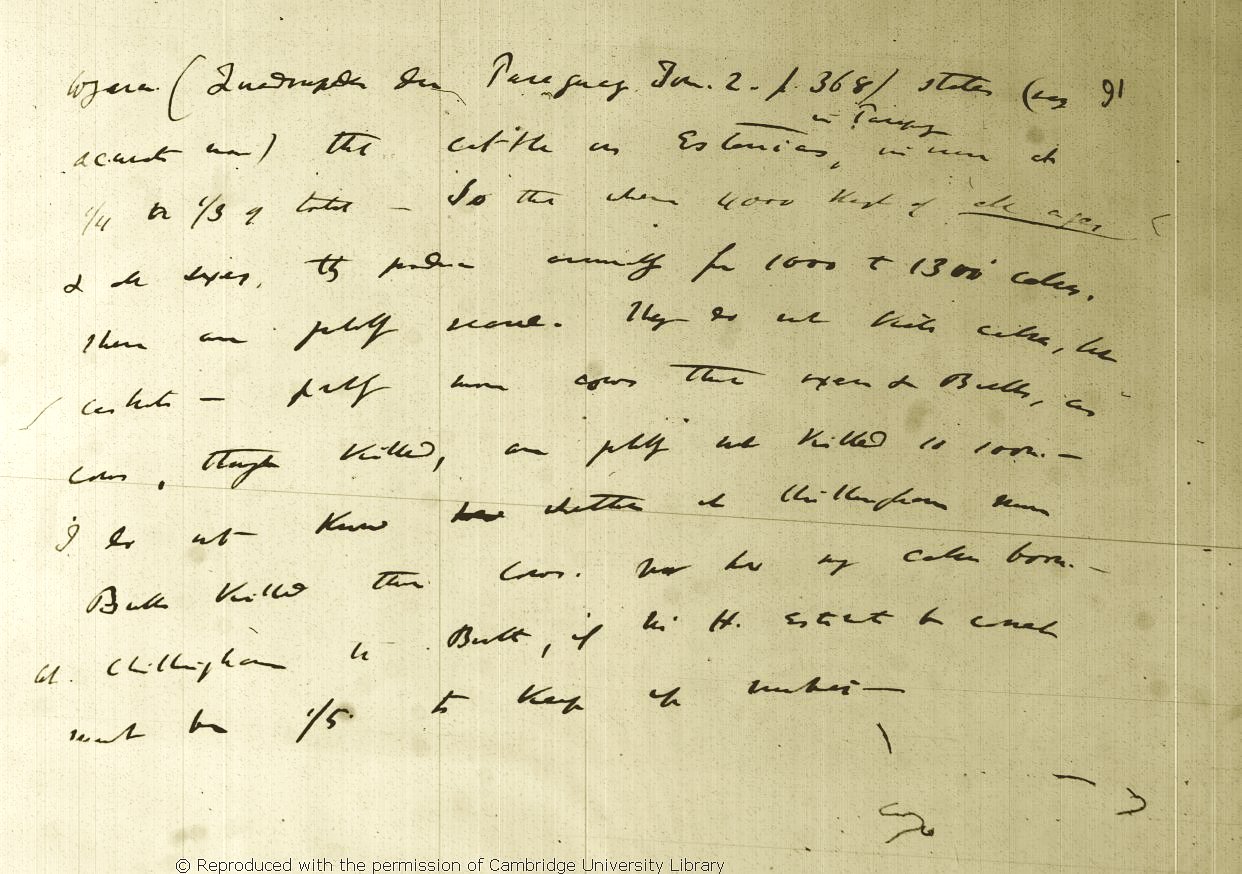 Azara (Quadrupedes du Paraguay Tom. 2. p. 368) states (very
in Paraguay
accurate man) that cattle on Estancias, increase at
1/4 or 1/3 of total — So that where 4000 Head of all ages
& all sexes, they produce annually for 1000 to 1300 calves.
There are probably none. They do not kill calves, but
— probably more cows than oxen & Bulls, as
cows, though killed, are probably not killed so soon. —
I do not know whether at Chillingham more
Bulls killed than Cows. nor how many calves born. —
at. Chillingham Bulls, if Mr H. be correct
must be 1/5 to keep up number —
91
© Reproduced with the permission of Cambridge University Library